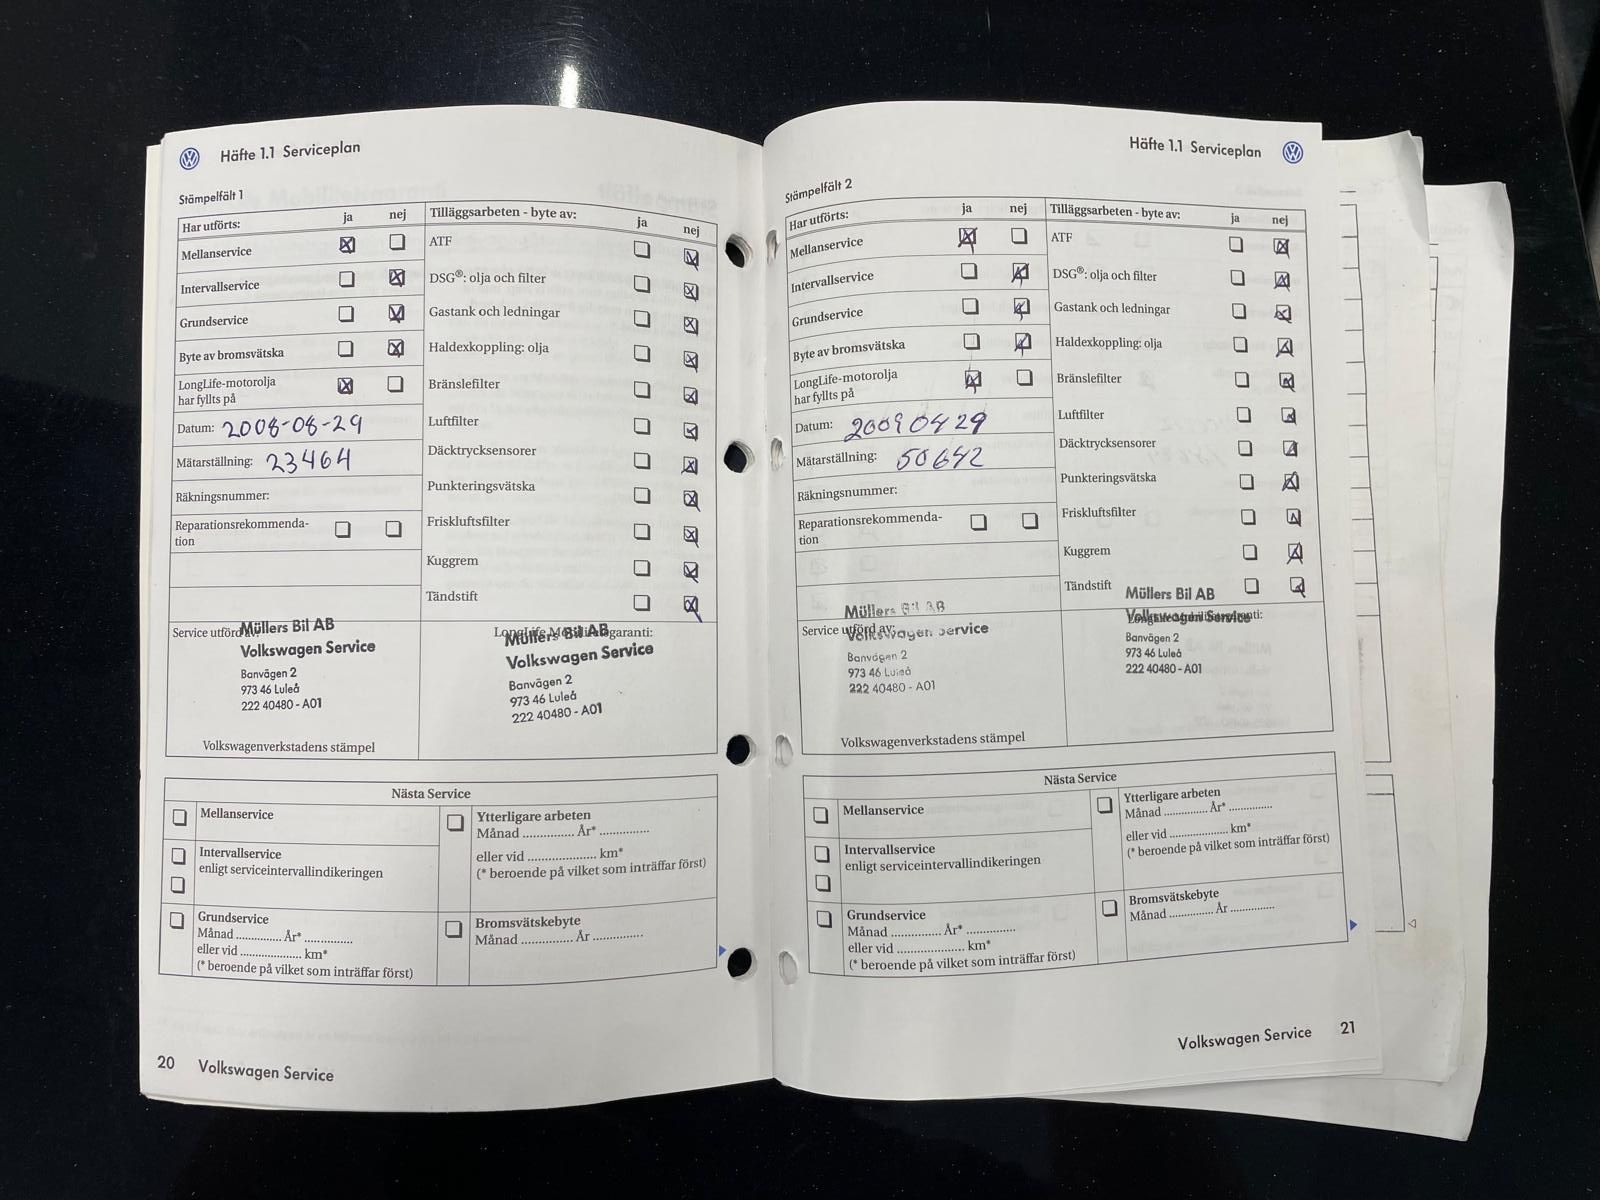 Häfte 1.1 Serviceplan
Stämpelfält 1
Har utförts: ja nej
Mellanservice
Intervallservice
Grundservice
Byte av bromsvätska
LongLife-motorolja
har fyllts på
Datum: 2008-08-29
Mätarställning: 23464
Räkningsnummer:
Reparationsrekommenda-
tion
Tilläggsarbeten - byte av: ja nej
ATF
DSG®: olja och filter
Gastank och ledningar
Haldexkoppling: olja
Bränslefilter
Luftfilter
Däcktrycksensorer
Punkteringsvätska
Friskluftsfilter
Kuggrem
Tändstift
Service utförd av:
Müllers Bil AB
Volkswagen Service
Banvägen 2
973 46 Luleå
222 40480 - A01
Volkswagenverkstadens stämpel
LongLife Mobilitetsgaranti:
Müllers Bil AB
Volkswagen Service
Banvägen 2
973 46 Luleå
222 40480 - A01
Nästa Service
Mellanservice
Intervallservice
enligt serviceintervallindikeringen
Grundservice
Månad .............. År* ...............
eller vid .................... km*
(* beroende på vilket som inträffar först)
Ytterligare arbeten
Månad ............... År* ...............
eller vid .................... km*
(* beroende på vilket som inträffar först)
Bromsvätskebyte
Månad ............... År ...............
20 Volkswagen Service
Häfte 1.1 Serviceplan
Stämpelfält 2
Har utförts: ja nej
Mellanservice
Intervallservice
Grundservice
Byte av bromsvätska
LongLife-motorolja
har fyllts på
Datum: 20090429
Mätarställning: 50642
Räkningsnummer:
Reparationsrekommenda-
tion
Tilläggsarbeten - byte av: ja nej
ATF
DSG®: olja och filter
Gastank och ledningar
Haldexkoppling: olja
Bränslefilter
Luftfilter
Däcktrycksensorer
Punkteringsvätska
Friskluftsfilter
Kuggrem
Tändstift
Service utförd av:
Müllers Bil AB
Volkswagen Service
Banvägen 2
973 46 Luleå
222 40480 - A01
Volkswagenverkstadens stämpel
Müllers Bil AB
Volkswagen Service
Banvägen 2
973 46 Luleå
222 40480 - A01
Nästa Service
Mellanservice
Intervallservice
enligt serviceintervallindikeringen
Grundservice
Månad ............... År* ...............
eller vid .................... km*
(* beroende på vilket som inträffar först)
Ytterligare arbeten
Månad ............. År* .............
eller vid .................... km*
(* beroende på vilket som inträffar först)
Bromsvätskebyte
Månad ............... År ...............
Volkswagen Service 21